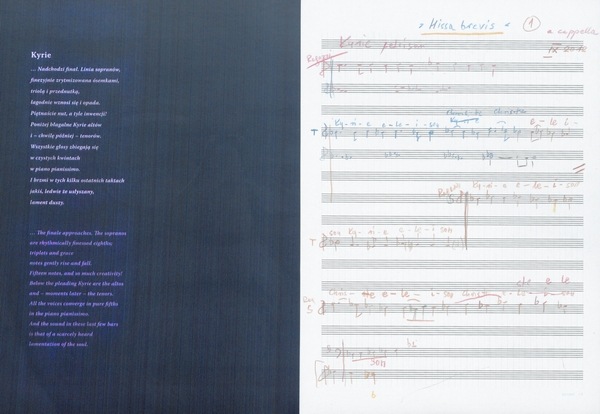 Kyrie
... Nadchodzi finał. Linia sopranów,
finezyjnie zrytmizowana ósemkami,
triolą i przednutką,
łagodnie wznosi się i opada.
Piętnaście nut, a tyle inwencji!
Poniżej błagalne Kyrie altów
i – chwilę później – tenorów.
Wszystkie głosy zbiegają się
w czystych kwintach
w piano pianissimo.
I brzmi w tych kilku ostatnich taktach
jakiś, ledwie to usłyszany,
lament duszy.
... The finale approaches. The sopranos
are rhythmically finessed eighths;
triplets and grace
notes gently rise and fall.
Fifteen notes, and so much creativity!
Below the pleading Kyrie are the altos
and – moments later – the tenors.
All the voices converge in pure fifths
in the piano pianissimo.
And the sound in these last few bars
is that of a scarcely heard
lamentation of the soul.
Missa brevis
1
a cappella
Kyrie eleison
T Ky-ri-e e-le-i-son e-le-i-
Ky-ri-e e-le-i-son
S
T son Ky-ri-e e-le-i-son
S Chris- e-le-i-son
son